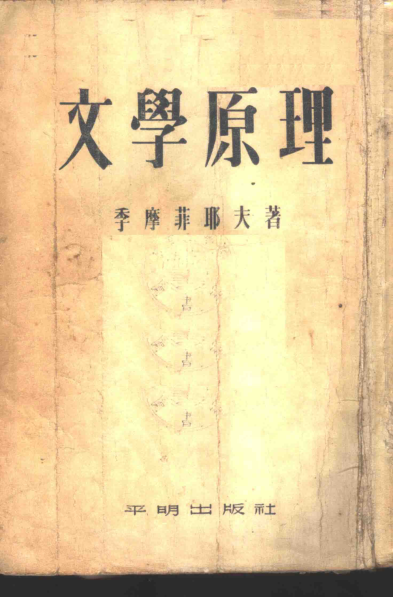 文學原理
季摩菲耶夫著
書
書
書
平明出版社